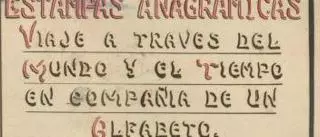 ESTAMPAS ANAGRAMICAS
VIAJE A TRAVES DEL
MUNDO Y EL TIEMPO
EN COMPAÑIA DE UN
ALFABETO.